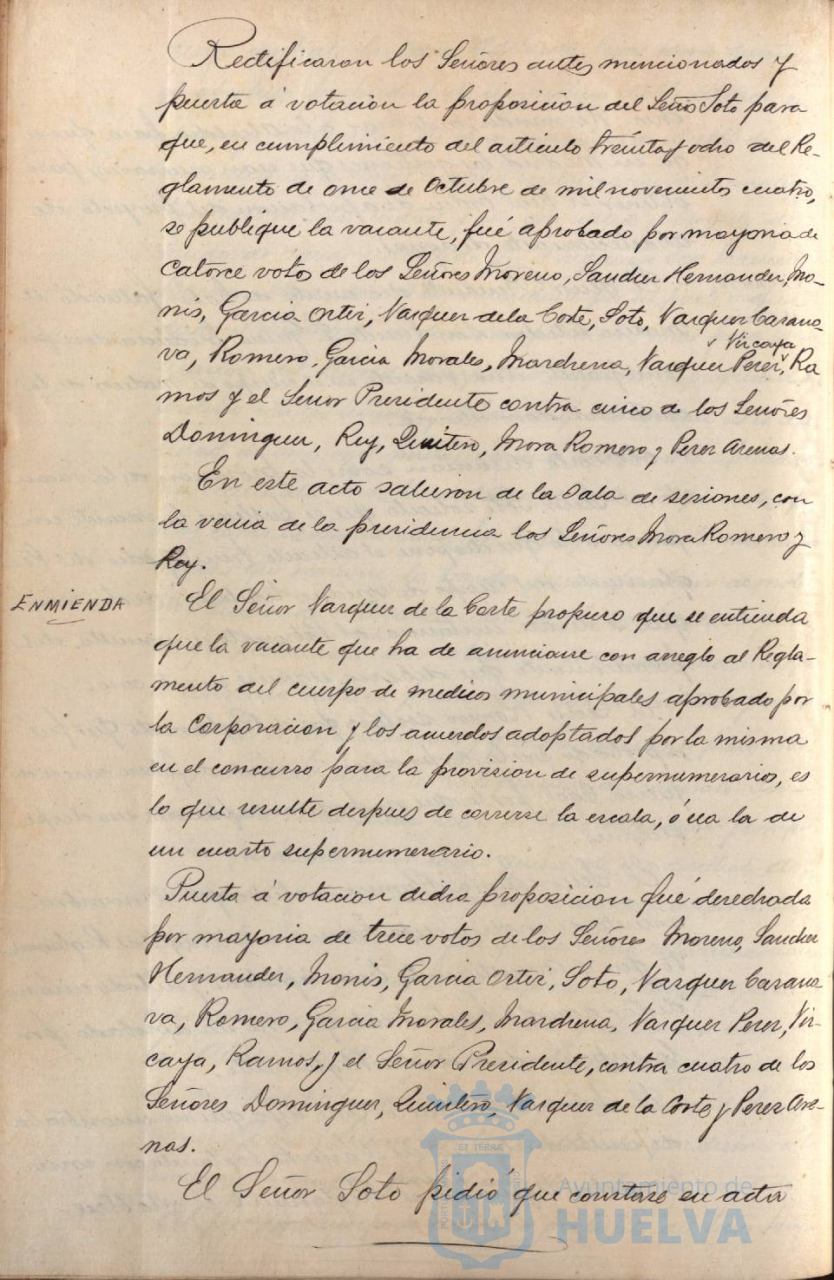 Rectificaron los Señores antes mencionados y
puesta á votacion la proposicion del Señor Soto para
que, en cumplimiento del articulo treinta y ocho del Re-
glamento de once de Octubre de mil novecientos cuatro,
se publique la vacante, fué aprobado por mayoria de
catorce votos de los Señores Moreno, Sanchez Hernandez, Mo-
nis, Garcia Ortiz, Vazquez de la Corte, Soto, Vazquez Casano-
Vizcaya
va, Romero, Garcia Morales, Marchena, Vazquez Perez, Ra
mos y el Señor Presidente contra cinco de los Señores
Dominguez, Rey, Quintero, Mora Romero y Perez Arenas.
En este acto salieron de la Sala de sesiones, con
la venia de la presidencia los Señores Mora Romero y
Rey.
ENMIENDA
El Señor Vazquez de la Corte propuso que se entienda
que la vacante que ha de anunciarse con arreglo al Regla-
mento del cuerpo de medicos municipales aprobado por
la Corporacion y los acuerdos adoptados por la misma
en el concurso para la provision de supernumerarios, es
lo que resulte despues de correrse la escala, ó sea la de
un cuarto supernumerario.
Puesta á votacion dicha proposicion fué desechada
por mayoria de trece votos de los Señores Moreno, Sanchez
Hernandez, Monis, Garcia Ortiz, Soto, Vazquez Casano
va, Romero, Garcia Morales, Marchena, Vazquez Perez, Viz-
caya, Ramos, y el Señor Presidente, contra cuatro de los
Señores Dominguez, Quintero, Vazquez de la Corte y Perez Are-
nas.
El Señor Soto pidió que constase en acta
Ayuntamiento de
HUELVA